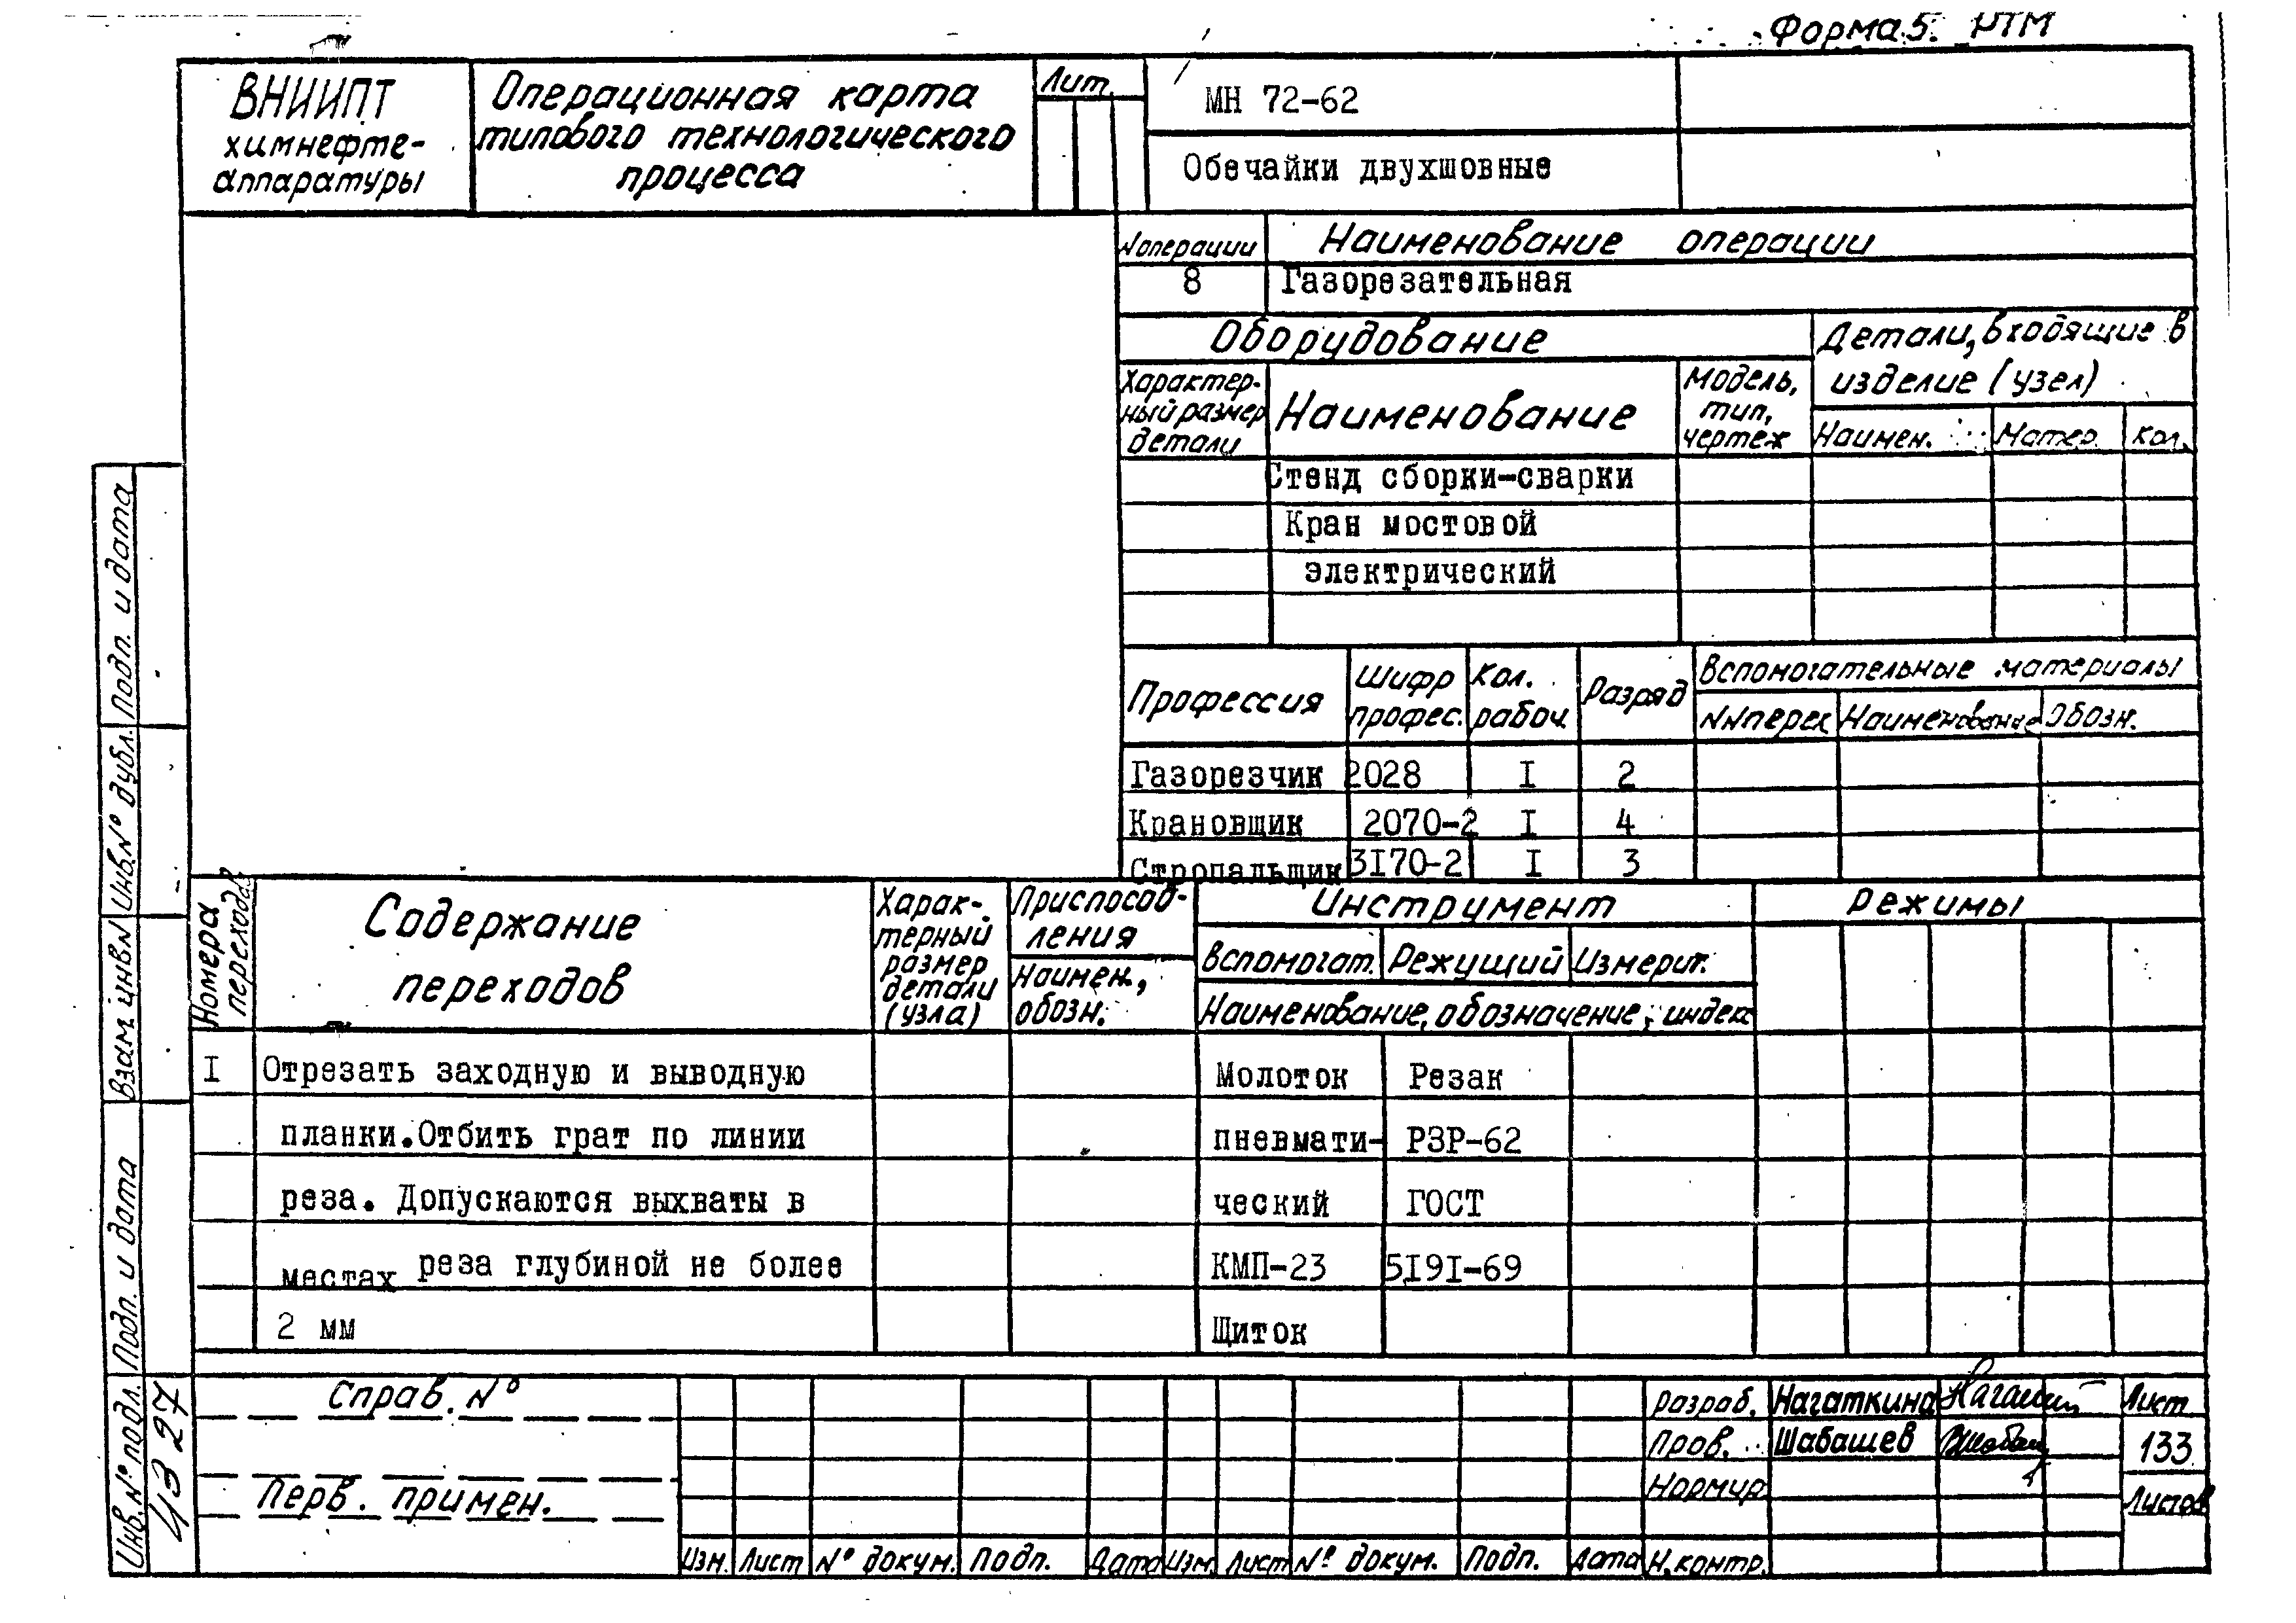 Форма 5. РТМ
ВНИИПТ
химнефте-
аппаратуры
Операционная карта
типового технологического
процесса
Лит.
МН 72-62
Обечайки двухшовные
№ операции
Наименование операции
8
Газорезательная
Оборудование
Детали, входящие в
изделие (узел)
Характер-
ный размер
детали
Наименование
Модель,
тип,
чертеж
Наимен.
Матер.
Кол.
Стенд сборки-сварки
Кран мостовой
электрический
Профессия
Шифр
профес.
Кол.
рабоч.
Разряд
Вспомогательные материалы
№№ перех
Наименование
Обозн.
Газорезчик 2028 I 2
Крановщик 2070-2 I 4
Стропальщик 3I70-2 I 3
Номера
переходов
Содержание
переходов
Харак-
терный
размер
детали
(узла)
Приспособ-
ления
Наимен.,
обозн.
Инструмент
Режимы
Вспомогат. Режущий Измерит.
Наименование, обозначение, индекс
I Отрезать заходную и выводную Молоток Резак
планки.Отбить грат по линии пневмати- РЗР-62
реза. Допускаются выхваты в ческий ГОСТ
местах реза глубиной не более КМП-23 5I9I-69
2 мм Щиток
Справ. №
Перв. примен.
Разраб. Нагаткина
Пров. Шабашев
Нормир.
Изм. Лист № докум. Подп. Дата Изм. Лист № докум. Подп. Дата Н.контр.
Лист
133
Листов
Подп. и дата
Инв.№ дубл.
Взам. инв.№
Подп. и дата
Инв.№ подл.
4327